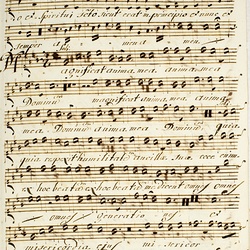 et Spiritui scto sicut erat in principio et nunc et
semper a men a men
agnificat anima mea anima mea
Dominum magnificat anima mea anima
mea Dominum anima mea Dominum quia
quia respexit humilitatem ancillæ suæ ecce enim
ex hoc beatam ex hoc beatam me dicent omnes omnes
omnes generatio nes et
misericordia ejus mi sericor